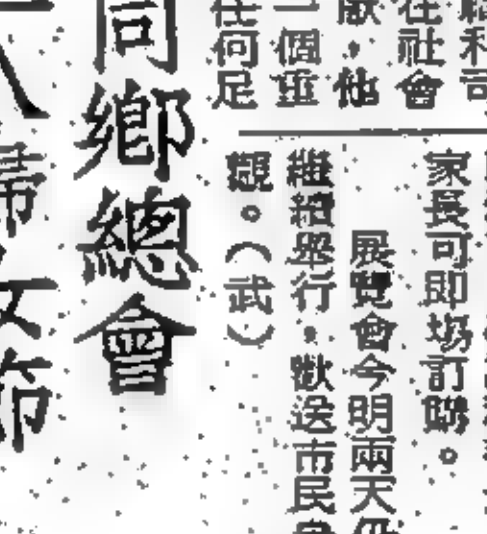 在社會
獻,他
一個重
任何足
家長可即場訂購。
展覽會今明兩天仍
繼續舉行,歡迎市民參
觀。(武)
同鄉總會
八婦女節